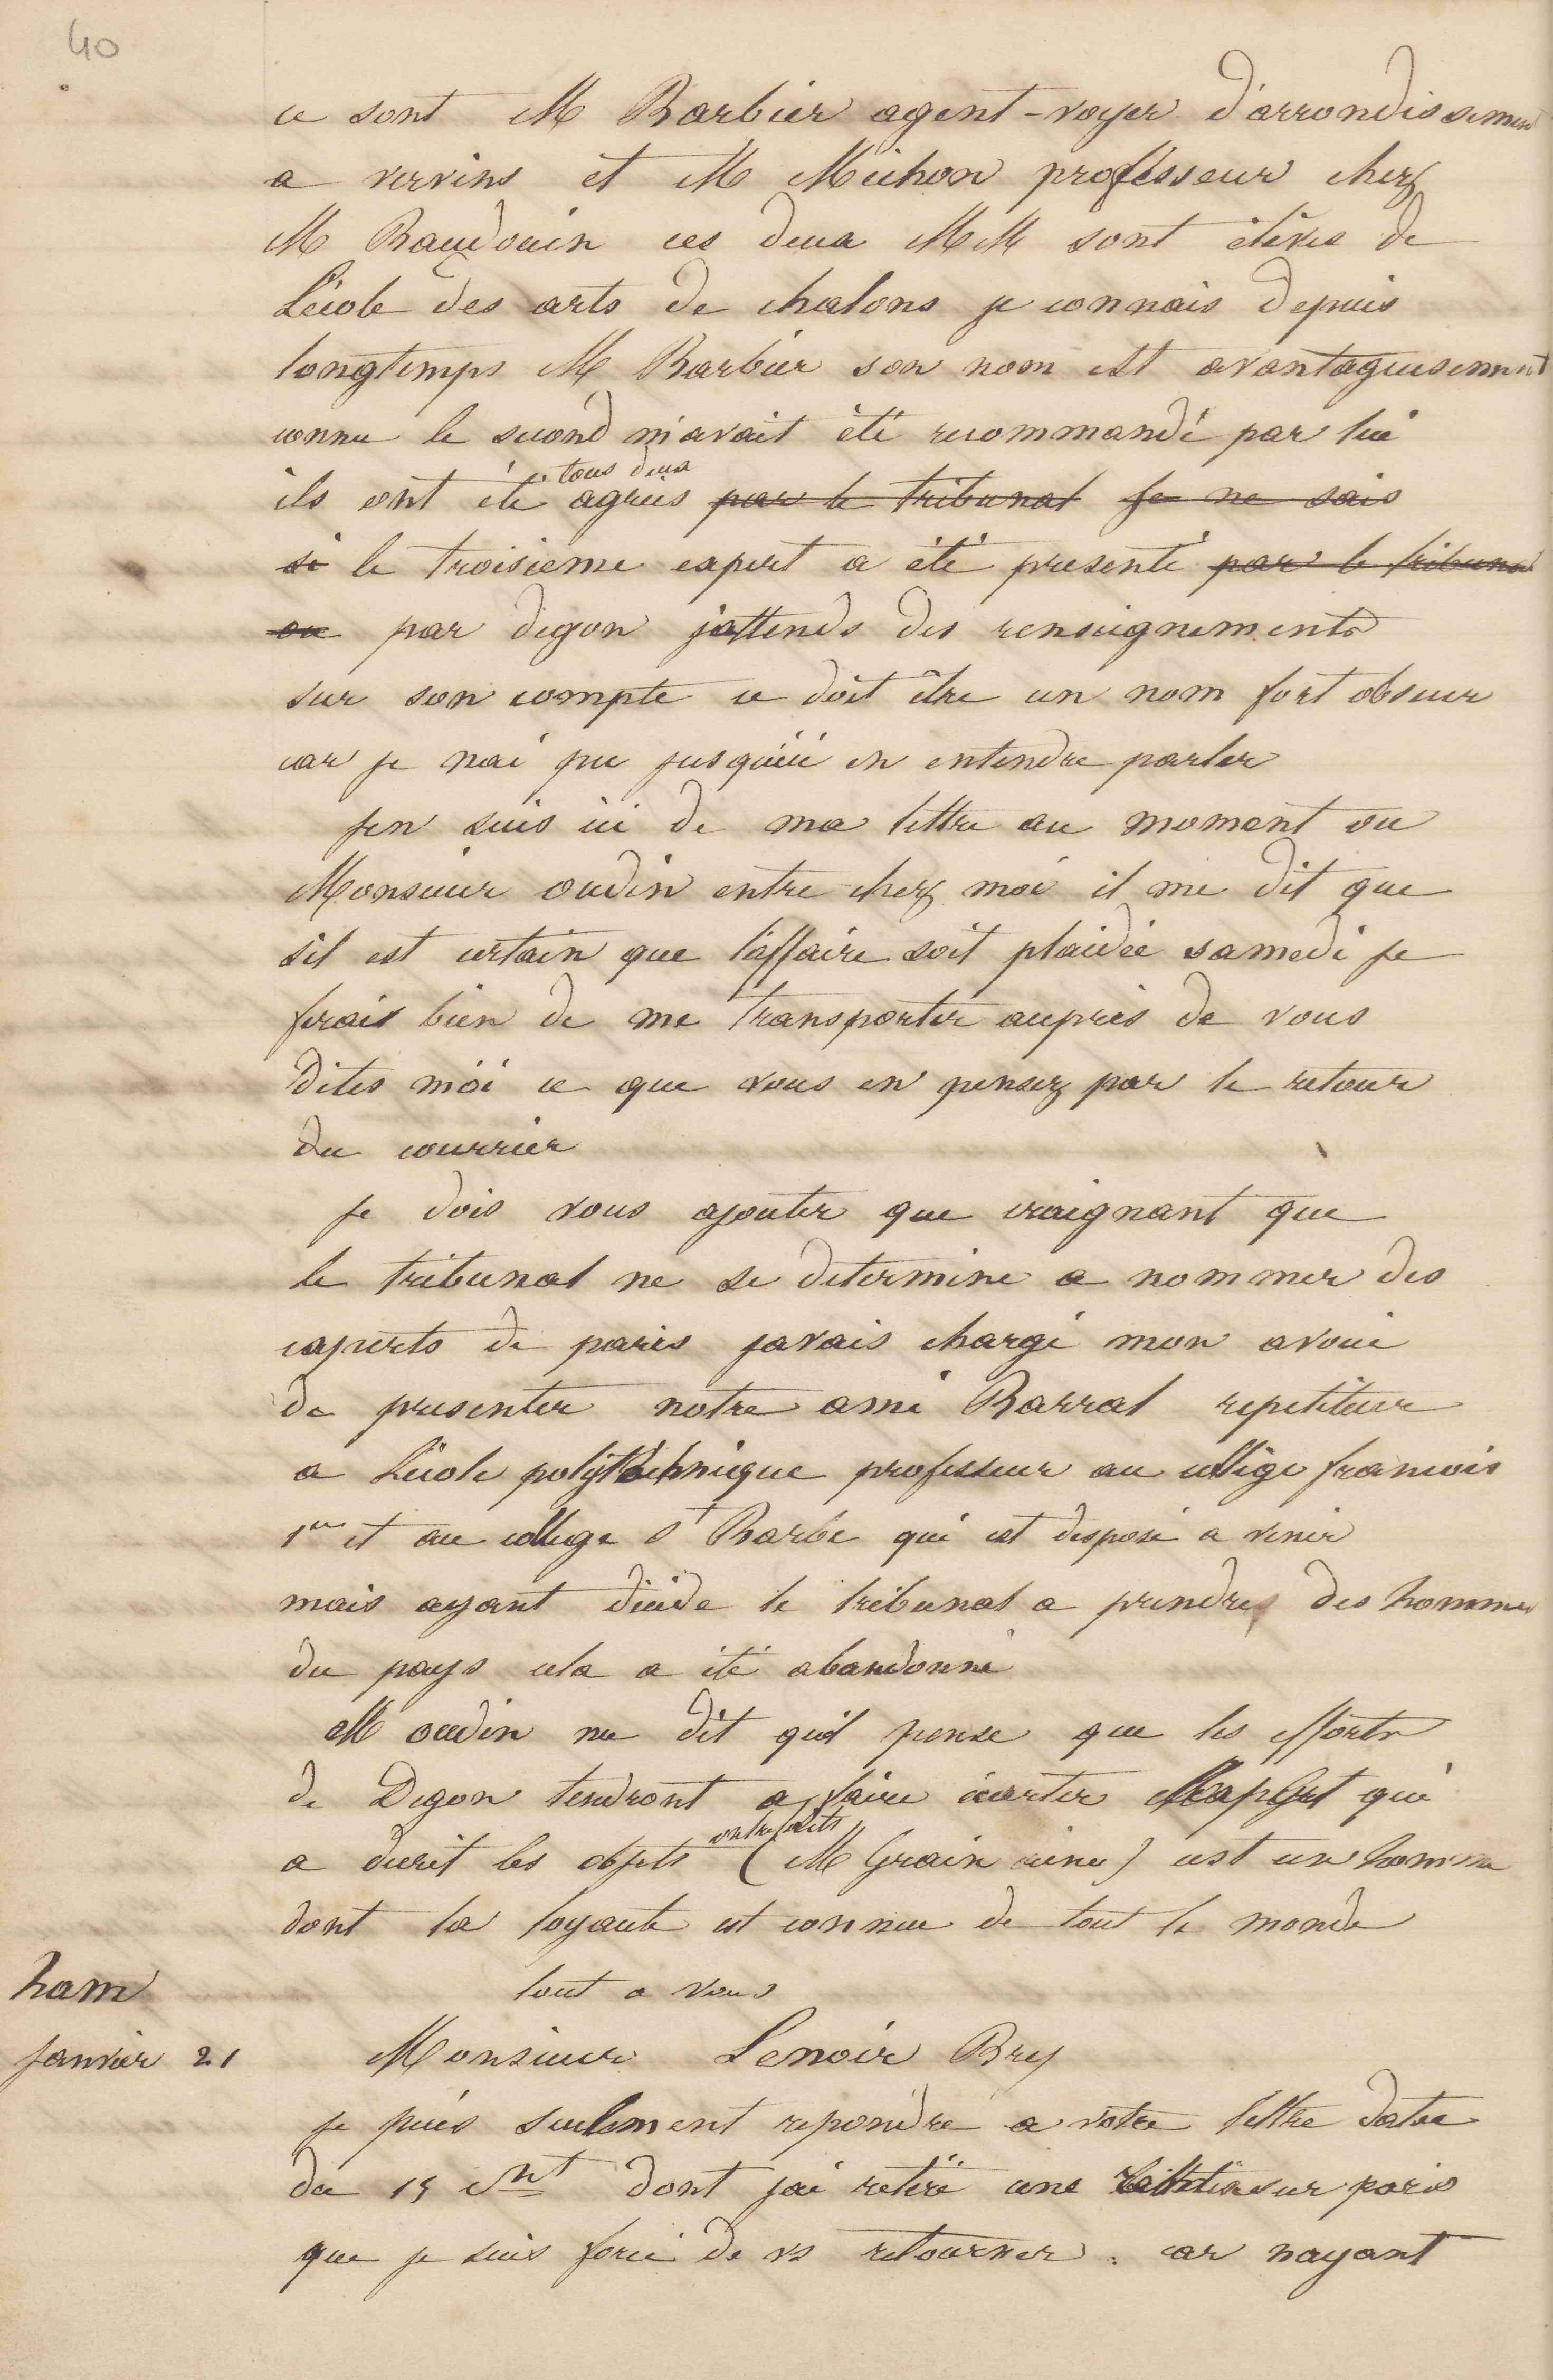 40
ce sont M Barbier agent-voyer d'arrondissement
a vervins et M Michon professeur chez
M Baudouin ces deux MM sont élèves de
L'école des arts de chalons je connais depuis
longtemps M Barbier son nom est avantageusement
connu le second m'avait été recommandé par lui
tous deux
ils ont été agréés par le tribunal je ne sais
si le troisieme expert a été presenté par le tribunal
ou par degon j'attends des renseignements
sur son compte ce doit être un nom fort obscur
car je n'ai pu jusqu'ici en entendre parler
j'en suis ici de ma lettre au moment ou
Monsieur oudin entre chez moi il me dit que
s'il est certain que l'affaire soit plaidée samedi je
ferais bien de me transporter auprès de vous
dites moi ce que vous en pensez par le retour
du courrier
je dois vous ajouter que craignant que
le tribunal ne se determine a nommer des
experts de paris j'avais chargé mon avoué
de presenter notre ami Barral repetiteur
a L'école polytechnique professeur au collége francois
1er et au collège St Barbe qui est disposé a venir
mais ayant décidé le tribunal a prendre des hommes
du pays cela a été abandonné
M oudin me dit qu'il pense que les efforts
de Degon tendront a faire écarter l'expert qui
contrefaits
a decrit les objets (M Grain ainé) c'est un homme
dont la loyauté est connue de tout le monde
tout a vous
ham
janvier 21
Monsieur Lenoir Bry
je puis seulement repondre a votre lettre datée
du 15 Cnt dont j'ai retiré une sur paris
que je suis forcé de vs retourner. car n'ayant